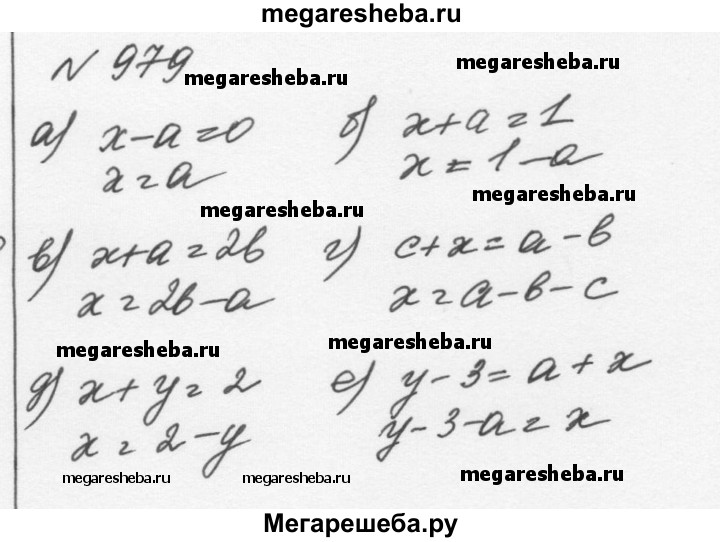 megaresheba.ru
№ 979
megaresheba.ru
megaresheba.ru
а) x-a=0
x=a
б) x+a=1
x=1-a
megaresheba.ru
megaresheba.ru
в) x+a=2b
x=2b-a
г) c+x=a-b
x=a-b-c
megaresheba.ru
megaresheba.ru
д) x+y=2
x=2-y
е) y-3=a+x
y-3-a=x
megaresheba.ru
megaresheba.ru
megaresheba.ru
Мегарешеба.ру